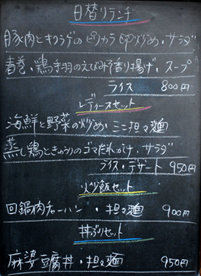 日替りランチ
豚肉とキクラゲのピリカラ卵炒め・サラダ
青巻、鶏手羽のえびみそ香り揚げ、スープ
ライス 800円
レディースセット
海鮮と野菜の炒め・ミニ担々麺
蒸し鶏ときゅうりのゴマだれがけ・サラダ
ライス・デザート 950円
炒飯セット
回鍋肉チャーハン・担々麺 900円
丼ぶりセット
麻婆豆腐丼・担々麺 950円